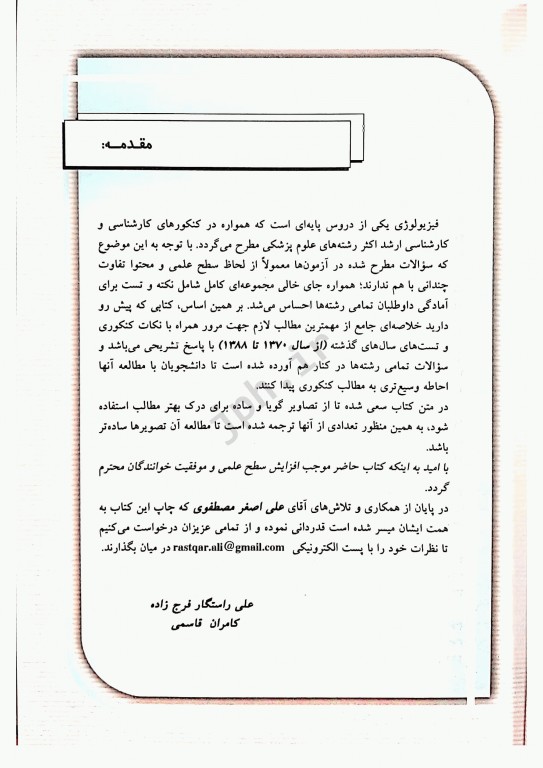 مقدمـه:
فیزیولوژی یکی از دروس پایه‌ای است که همواره در کنکورهای کارشناسی و
کارشناسی ارشد اکثر رشته‌های علوم پزشکی مطرح می‌گردد. با توجه به این موضوع
که سؤالات مطرح شده در آزمون‌ها معمولاً از لحاظ سطح علمی و محتوا تفاوت
چندانی با هم ندارند؛ همواره جای خالی مجموعه‌ای کامل شامل نکته و تست برای
آمادگی داوطلبان تمامی رشته‌ها احساس می‌شد. بر همین اساس، کتابی که پیش رو
دارید خلاصه‌ای جامع از مهمترین مطالب لازم جهت مرور همراه با نکات کنکوری
و تست‌های سال‌های گذشته (از سال ۱۳۷۰ تا ۱۳۸۸) با پاسخ تشریحی می‌باشد و
سؤالات تمامی رشته‌ها در کنار هم آورده شده است تا دانشجویان با مطالعه آنها
احاطه وسیع‌تری به مطالب کنکوری پیدا کنند.
در متن کتاب سعی شده تا از تصاویر گویا و ساده برای درک بهتر مطالب استفاده
شود، به همین منظور تعدادی از آنها ترجمه شده است تا مطالعه آن تصویرها ساده‌تر
باشد.
با امید به اینکه کتاب حاضر موجب افزایش سطح علمی و موفقیت خوانندگان محترم
گردد.
در پایان از همکاری و تلاش‌های آقای علی اصغر مصطفوی که چاپ این کتاب به
همت ایشان میسر شده است قدردانی نموده و از تمامی عزیزان درخواست می‌کنیم
تا نظرات خود را با پست الکترونیکی rastqar.ali@gmail.com در میان بگذارند.
علی راستگار فرج زاده
کامران قاسمی